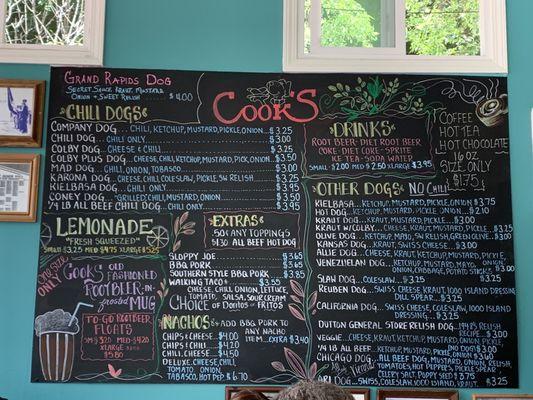 GRAND RAPIDS DOG
SECRET SAUCE, KRAUT, MUSTARD
ONION & SWEET RELISH $4.00
COOK'S
CHILI DOGS
COMPANY DOG... CHILI, KETCHUP, MUSTARD, PICKLE, ONION $3.25
CHILI DOG... CHILI ONLY $3.00
COLBY DOG... CHEESE & CHILI $3.25
COLBY PLUS DOG... CHEESE, CHILI, KETCHUP, MUSTARD, PICK, ONION $3.50
MAD DOG... CHILI, ONION, TABASCO $3.00
KARONA DOG... CHILI, CHEESE, COLESLAW, PICKLE, SW RELISH $3.25
KIELBASA DOG... CHILI ONLY $3.95
CONEY DOG... "GRILLED" CHILI, MUSTARD, ONION $3.50
1/4 LB ALL BEEF CHILI DOG... CHILI ONLY $3.95
DRINKS
ROOT BEER - DIET ROOT BEER
COKE - DIET COKE - SPRITE
ICE TEA - SODA WATER
SMALL $2.00 MED $2.50 LARGE $3.95
COFFEE
HOT TEA
HOT CHOCOLATE
16 OZ
SIZE ONLY
$1.75
LEMONADE
"FRESH SQUEEZED"
SM $3.25 MED $4.75 XLARGE $5.95
IN SIZE ONE
COOK'S OLD
FASHIONED
ROOT BEER - IN -
frosted MUG
TO-GO ROOT BEER
FLOATS
SM $3.80 XLARGE
$5.80
EXTRAS
50¢ ANY TOPPINGS
$1.30 ALL BEEF HOT DOG
SLOPPY JOE $3.65
BBQ PORK $3.65
SOUTHERN STYLE BBQ PORK $3.95
WALKING TACO
CHEESE, CHILI, ONION, LETTUCE,
TOMATO, SALSA, SOUR CREAM
CHOICE of Doritos or FRITOS
NACHOS
ADD BBQ PORK
TO ANY NACHO
ITEM $3.40
CHIPS & CHEESE $4.00
CHIPS & CHILI $4.00
CHILI, CHEESE $4.50
DELUXE, CHEESE, CHILI,
TOMATO, ONION,
TABASCO, HOT PEP $6.70
OTHER DOGS
NO CHILI
KIELBASA... KETCHUP, MUSTARD, PICKLE, ONION $3.75
HOT DOG... KETCHUP, MUSTARD, PICKLE, ONION $2.10
KRAUT DOG... KRAUT, MUSTARD, PICKLE $3.00
KRAUT W/COLBY... CHEESE, KRAUT, MUSTARD, PICKLE $3.25
OLIVE DOG... KETCHUP, MAYO, SW RELISH, GREEN OLIVE $3.00
KANSAS DOG... KRAUT, SWISS CHEESE $3.00
ALLIE DOG... CHEESE, KETCHUP, MUSTARD, PICKLE
VENEZUELAN DOG... KETCHUP, MUSTARD, MAYO,
ONION, CABBAGE, POTATO STICKS $3.00
SLAW DOG... COLESLAW $3.25
REUBEN DOG... SWISS CHEESE, KRAUT, 1000 ISLAND DRESSING
DILL SPEAR $3.25
CALIFORNIA DOG... SWISS CHEESE, COLESLAW, 1000 ISLAND
DRESSING $3.25
DUTTON GENERAL STORE RELISH DOG
RECIPE $3.00
VEGGIE... CHEESE, KRAUT, KETCHUP, MUSTARD, ONION, PICKLE
1/4 LB ALL BEEF... KETCHUP, MUSTARD, PICKLE, ONION $3.40
CHICAGO DOG... ALL BEEF DOG, MUSTARD, ONION, RELISH,
TOMATOES, HOT PEPPERS, PICKLE SPEAR,
CELERY SALT, POPPY SEED $3.75
DOG... SWISS, COLESLAW, 1000 ISLAND, KRAUT $3.25